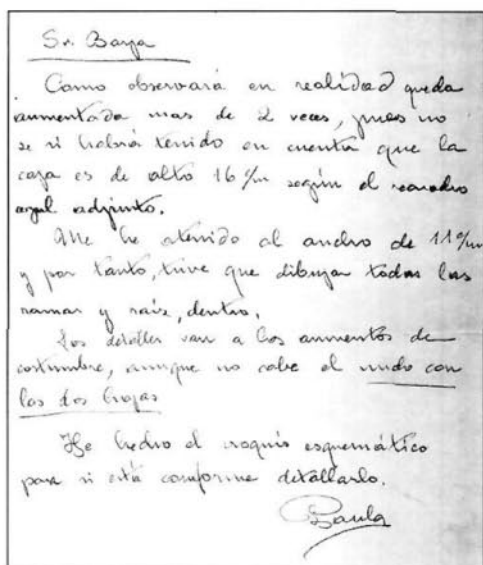 Sr. Baya
Como observará en realidad queda
aumentada mas de 2 veces, pues no
se si habrá tenido en cuenta que la
caja es de alto 16 c/m según el recuadro
azul adjunto.
Me he atenido al ancho de 11 c/m
y por tanto, tuve que dibujar todas las
ramas y raiz, dentro.
Los detalles van a los aumentos de
costumbre, aunque no cabe el nudo con
las dos hojas
He hecho el croquis esquemático
para si está conforme detallarlo.
Paula